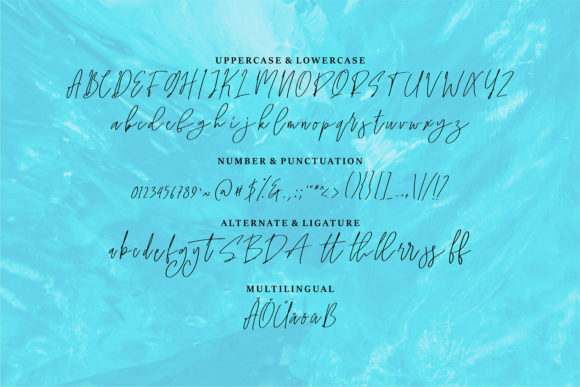 UPPERCASE & LOWERCASE
ABCDEFGHIJKLMNOPQRSTUVWXYZ
abcdefghijklmnopqrstuvwxyz
NUMBER & PUNCTUATION
0123456789`~@#$%&.,:;'"*^<>(){}[]_-.,\|/!?
ALTERNATE & LIGATURE
abcdefgytSBDA tt th ll rr ss ff
MULTILINGUAL
ÄÖÜäöüß